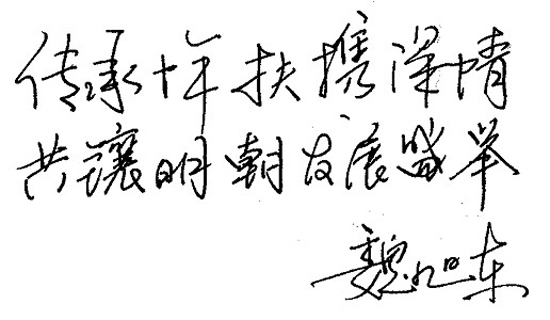 传承十年扶携深情
共镶明朝发展盛举
魏旭东